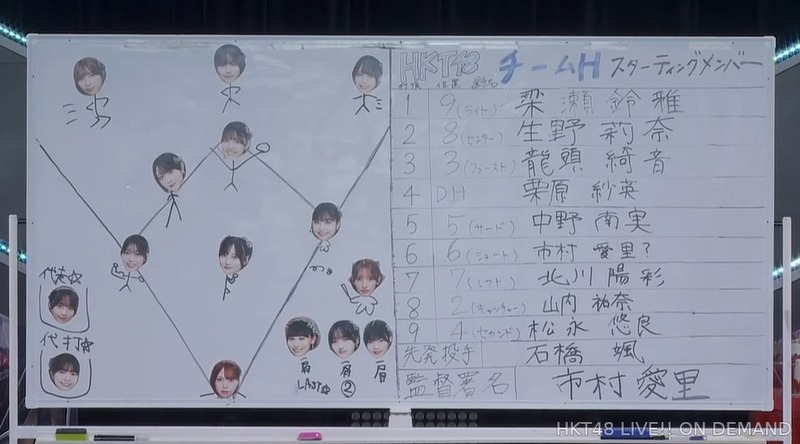 HKT48 チームH スターティングメンバー
打順 位置 選手名
1 9(ライト) 梁瀬鈴雅
2 8(センター) 生野莉奈
3 3(ファースト) 龍頭綺音
4 DH 栗原紗英
5 5(サード) 中野南実
6 6(ショート) 市村愛里?
7 7(レフト) 北川陽彩
8 2(キャッチャー) 山内祐奈
9 4(セカンド) 松永悠良
先発投手 石橋颯
監督署名 市村愛里
代走
代打
肩 LAST
肩 ②
肩
HKT48 LIVE!! ON DEMAND